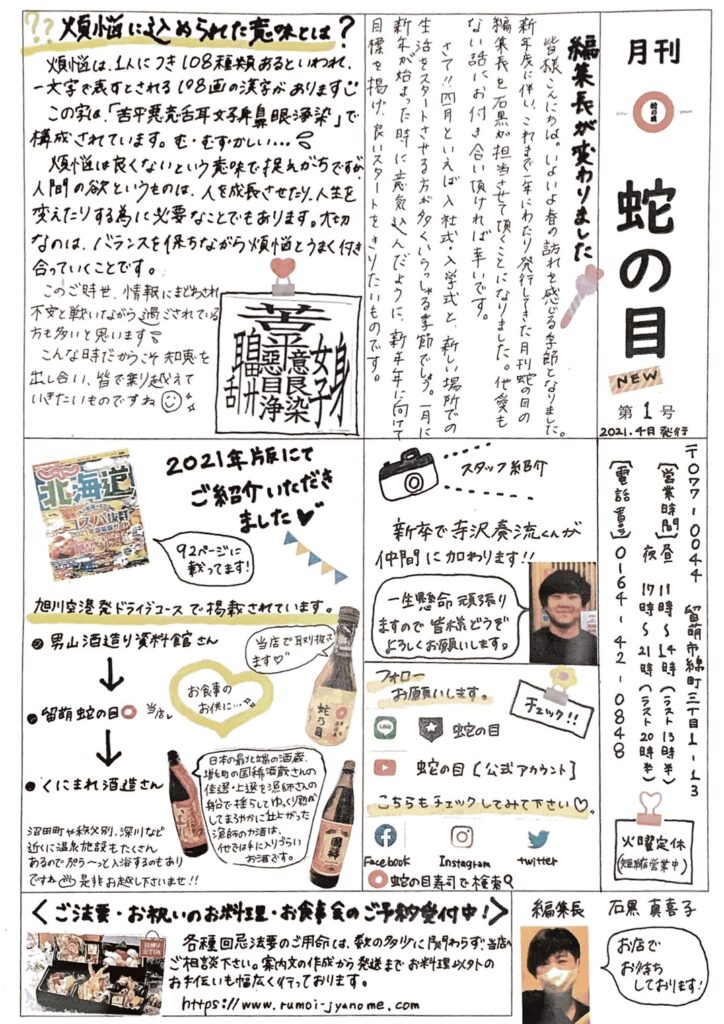 月刊
蛇の目
蛇の目
NEW
第1号
2021.4月発行
〒077-0044 留萌市錦町三丁目1-13
【営業時間】昼 11時~14時(ラスト13時半)
夜 17時~21時(ラスト20時半)
【電話番号】0164-42-0848
火曜定休
(短縮営業中)
編集長が変わりました
皆様こんにちは。いよいよ春の訪れを感じる季節となりました。
新年度に伴い、これまで一年にわたり発行してきた月刊蛇の目の
編集長を石黒が担当させて頂くことになりました。他愛も
ない話にお付き合い頂ければ幸いです。
さて!!四月といえば入社式・入学式と、新しい場所での
生活をスタートさせる方が多くいらっしゃる季節でしょう。一月に
新年が始まった時に意気込んだように、新年度に向けて
目標を掲げ、良いスタートをきりたいものです。
??煩悩に込められた意味とは?
煩悩は、1人につき108種類あるといわれ、
一文字で表すとされる108画の漢字があります
この字は、「苦平悪意舌耳女子身鼻眼浄染」で
構成されています。む・むずかしい…
煩悩は良くないという意味で捉えがちですが
人間の欲というものは、人を成長させたり、人生を
変えたりする為に必要なことでもあります。大切
なのは、バランスを保ちながら煩悩とうまく付き
合っていくことです。
このご時世、情報にまどわされ
不安と戦いながら過ごされている
方も多いと思います
こんな時だからこそ知恵を
出し合い、皆で乗り越えて
いきたいものですね
スタッフ紹介
新卒で寺沢奏流くんが
仲間に加わります!!
一生懸命頑張り
ますので皆様どうぞ
よろしくお願いします。
フォロー
お願いします。
チェック!!
LINE
蛇の目
蛇の目【公式アカウント】
こちらもチェックしてみて下さい♡。
Facebook Instagram twitter
蛇の目寿司で検索
北海道
2021年版にて
ご紹介いただき
ました♥
92ページに
載ってます!
旭川空港発ドライブコースで掲載されています。
●男山酒造り資料館さん
↓
●留萌 蛇の目 当店
↓
●くにまれ酒造さん
当店で取り扱って
ます♡
お食事の
お供に…
蛇乃目
日本の最北端の酒蔵、
増毛町の国稀酒蔵さんの
佳選・上選を漁師さんの
船で揺らしてゆっくり熟成
してまろやかに仕上がった
漁師の力酒は、
他では手に入りづらい
お酒です。
国稀
沼田町や秩父別、深川など
近くに温泉施設もたくさん
あるのでぷら~っと入浴するのもあり
ですね 是非お越し下さいませ!!
<ご法要・お祝いのお料理・お食事会のご予約受付中!>
各種回忌法要のご用命は、数の多少に関わらず当店へ
ご相談下さい。案内文の作成から発送までお料理以外の
お手伝いも幅広く行っております。
https://www.rumoi-jyanome.com
編集長 石黒 真喜子
お店で
お待ち
しております!